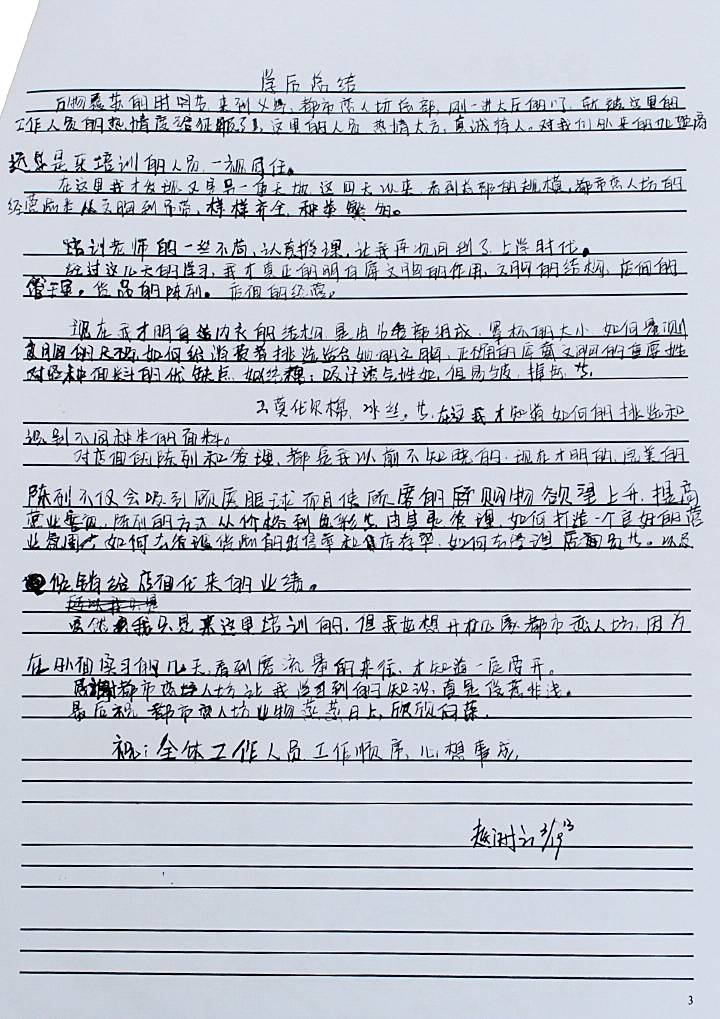 学后总结
万物复苏的时节,来到义乌,都市恋人坊总部,刚一进大厅的门,就被这里的
工作人员的热情度给征服了,这里的人员,热情大方,真诚待人。对我们外来的
还是来培训的人员,一视同仁。
在这里我才发现又是另一片天地,这四天以来,看到总部的规模,都市恋人坊的
经营从文胸到吊带,样样齐全,种类繁多。
培训老师的一丝不苟,认真授课,让我再次回到了上学时代。
经过这几天的学习,我才真正的明白文胸的作用,文胸的结构,店面的
管理。货品的陈列。店面的经营。
现在我才明白内衣的结构是由各部组成,罩杯的大小,如何量测
文胸的尺码,如何给消费者挑选适合她的文胸,正确的穿戴文胸的重要性
对各种面料的优缺点,如纯棉:吸汗透气性好,但易皱,掉色 等
莫代尔棉,冰丝,等,在这我才知道如何的挑选和
识别不同种类的面料。
对店面的陈列和管理,都是我以前不知晓的,现在才明的,完美的
陈列不仅会吸引顾客眼球而且使顾客的购物欲望上升,提高
营业额,陈列的方式从价格到色彩等,管理,如何打造一个良好的营
业氛围,如何去管理货品的销售率和库存率,如何去管理店员等。以及
促销给店面代来的业绩。
虽然我只是来这里培训的,但我也想开几家都市恋人坊,因为
在外面实习的几天,看到客流量的来往,才知道一定要开。
感谢都市恋人坊让我学习到的知识,真是受益非浅。
最后祝 都市恋人坊业物蒸蒸日上,欣欣向荣。
祝:全体工作人员工作顺序,心想事成
3/19 13
3